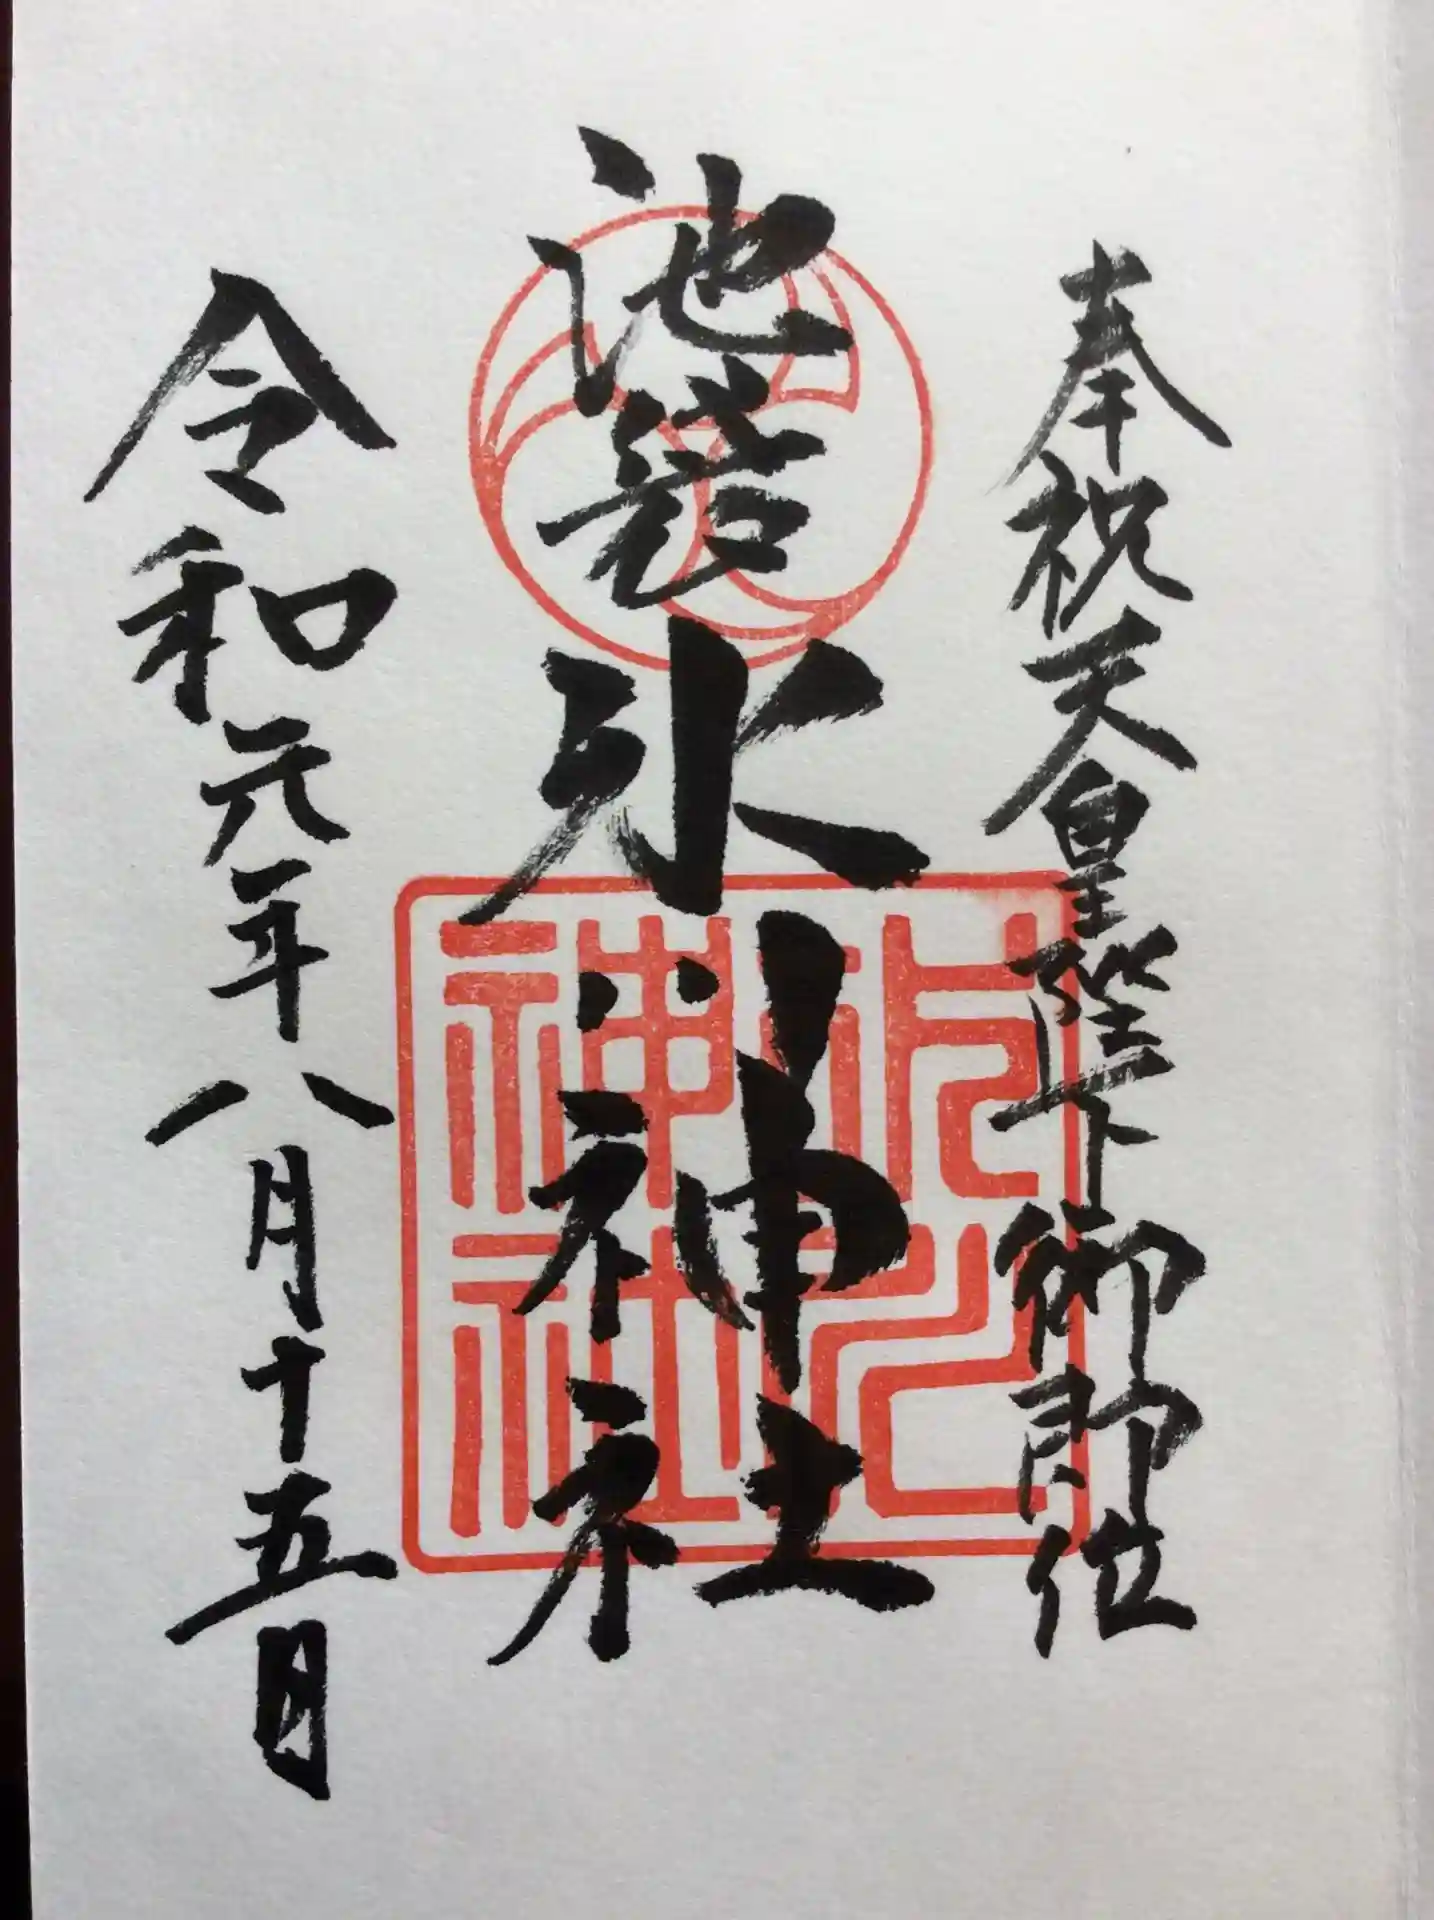 奉祝天皇陛下御即位
池袋氷川神社
令和元年八月十五日
神社